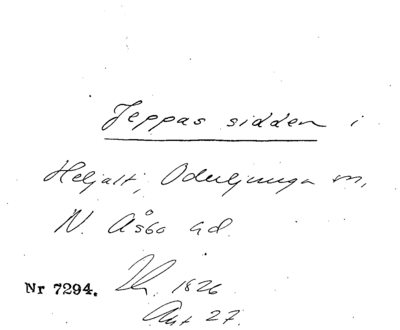 Jeppas sidden i
Heljalt, Oderljunga sn,
N. Åsbo hd.
Nr 7294. 1826
27.